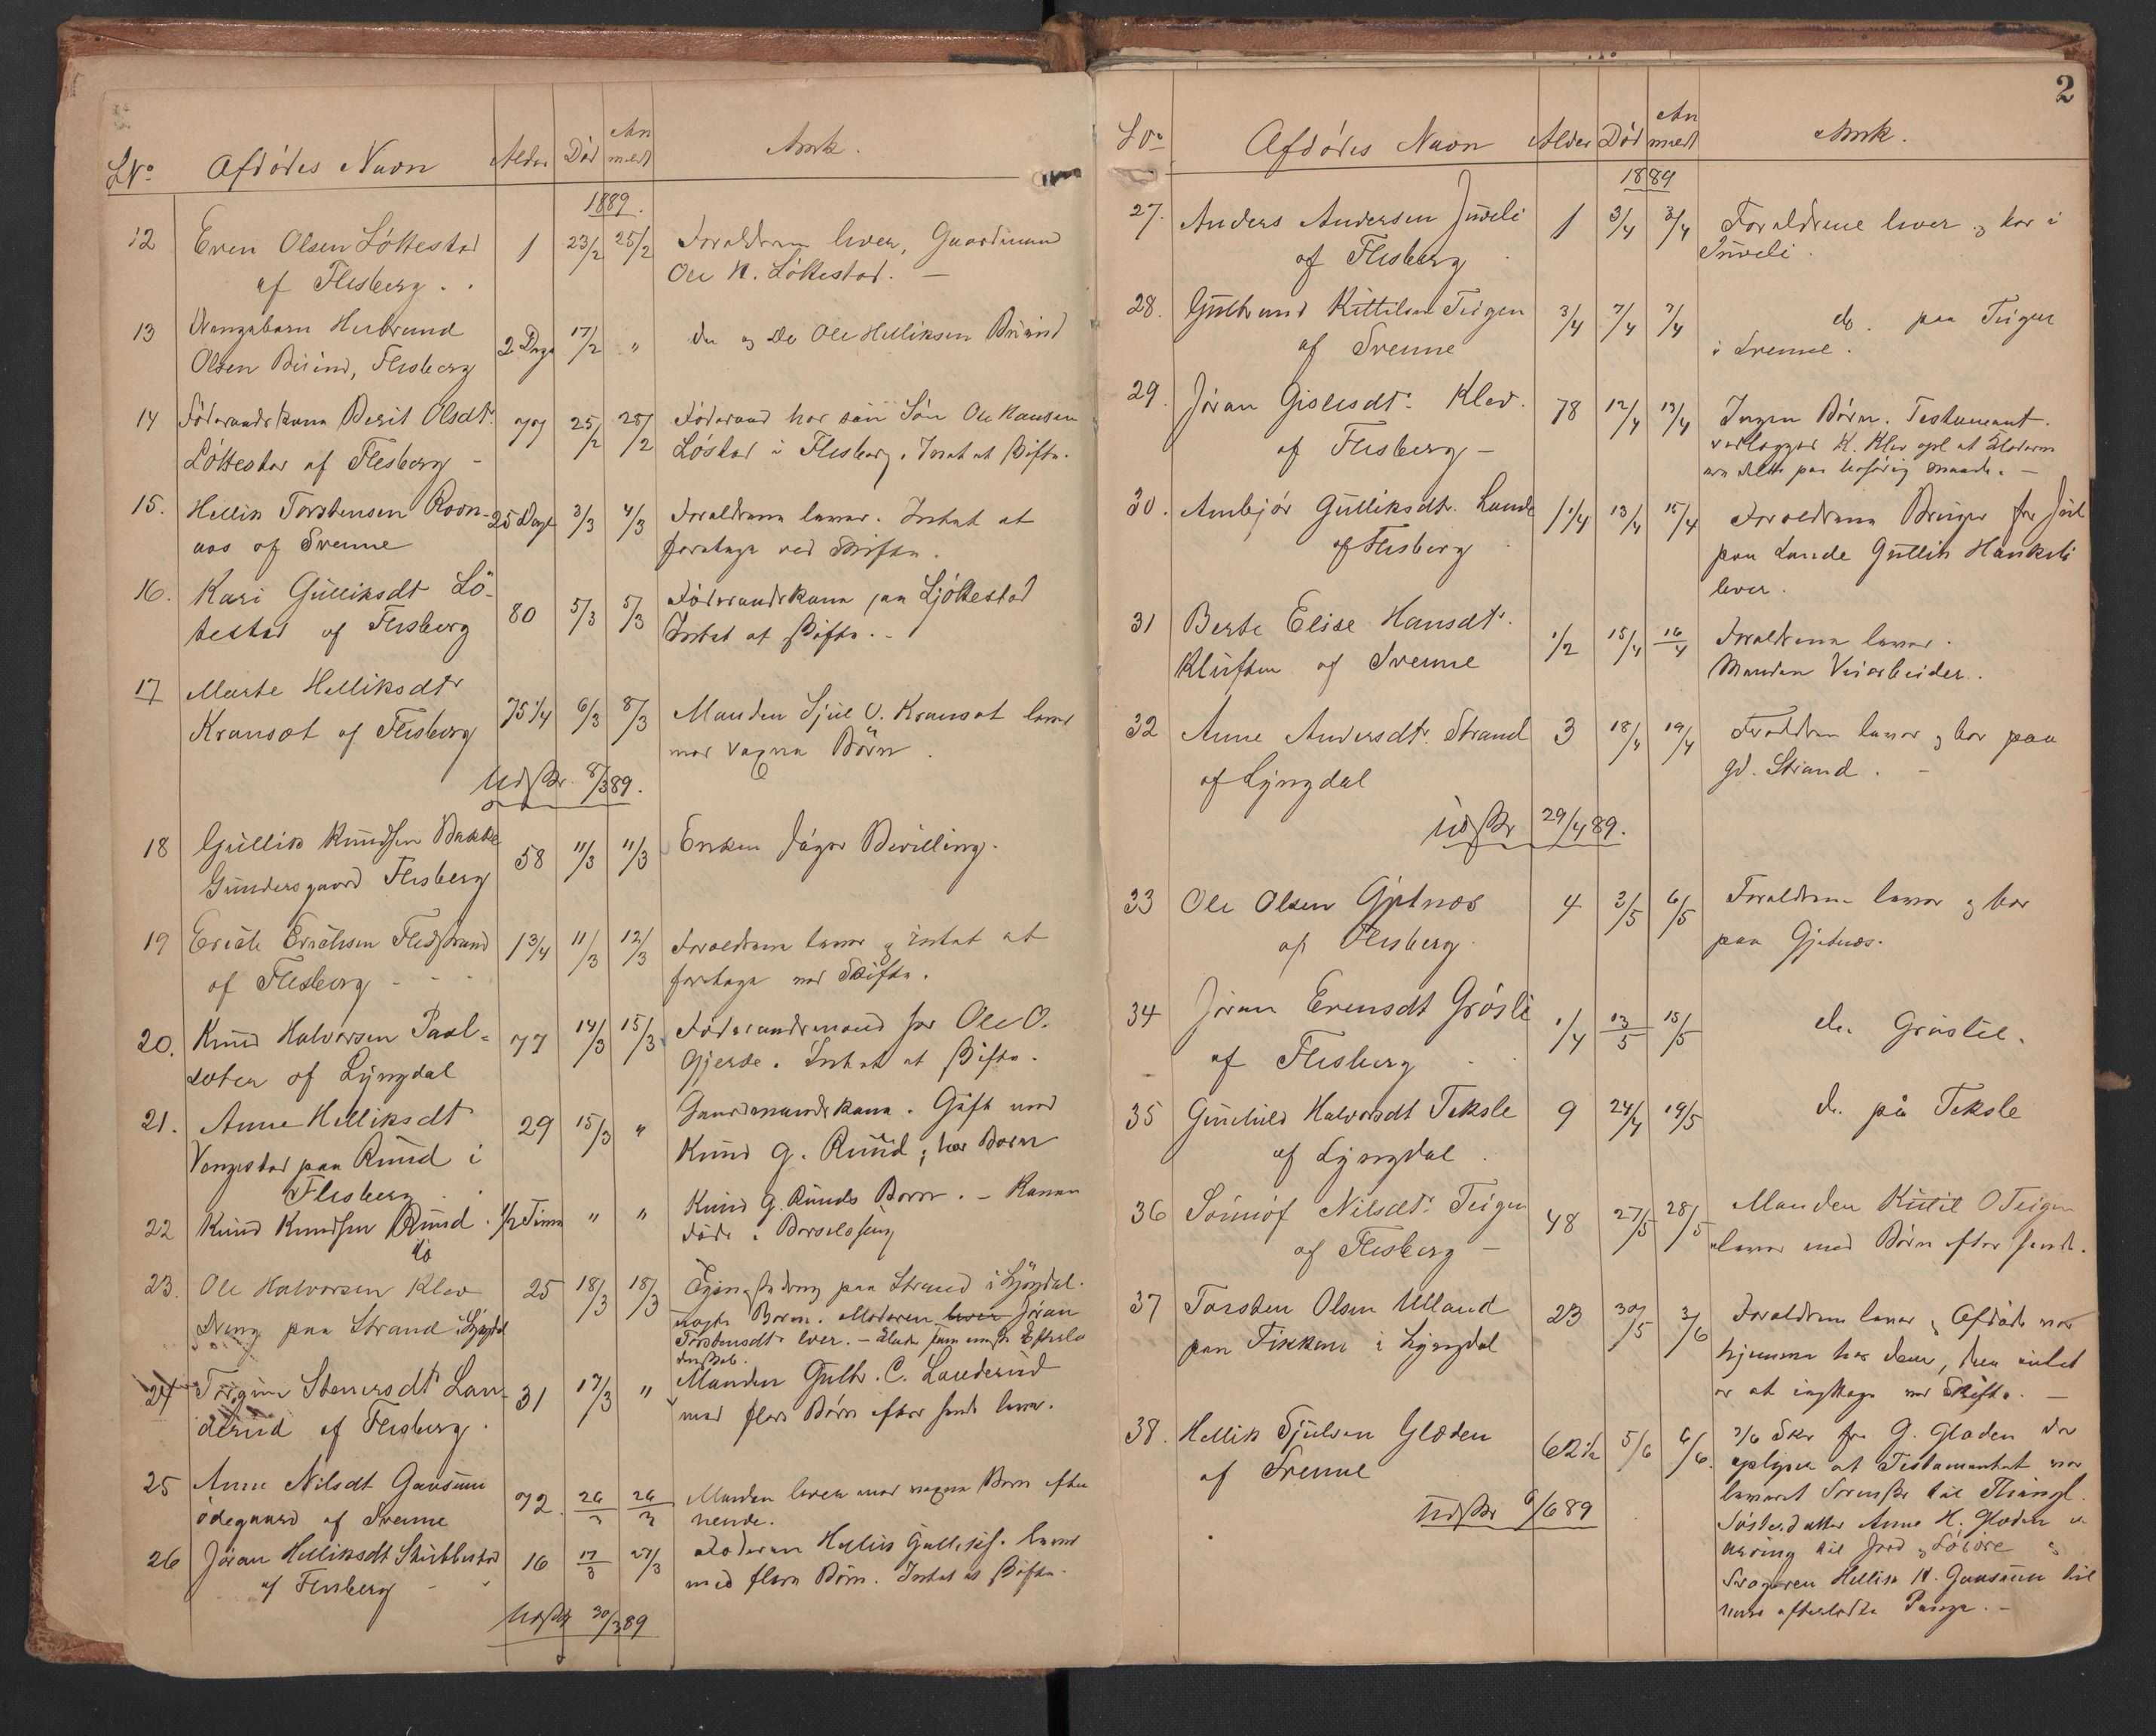 LNo Afdødes Navn Alder Død Anmeldt Anmk.
1889.
12 Even Olsen Løkkestad 1 23/2 25/2 Forældrene lever, Gaardmand
af Flesberg. Ole K. Løkkestad. —
13 Drengebarn Herbrand 2 Dage 17/2 " do og do Ole Helliksen Bruind
Olsen Flesberg
14 Føderaadskone Berit Olsdtr. 77 25/2 25/2 Føderaad hos sin Søn Ole Hansen
Løkkestad af Flesberg - i Flesberg. Intet at Skifte.
15. Hellik Torstensen 25 Dage 3/3 4/3 Forældrene lever. Intet at
aas af Svenne foretage ved Skifte.
16. Kari Gulliksdt Lø- 80 5/3 5/3 Føderaadskone paa Ljøkkestad
kestad af Flesberg Intet at Skifte. -
17 Marte Helliksdtr 75 1/4 6/3 8/3 Manden Sjul O. Kransat lever
Kransat af Flesberg med voxne Børn.
Udskr. 8/3 89.
18 Gullik Knudsen Bakke 58 11/3 11/3 Enken søger Bevilling.
Gundersgaard Flesberg
19 Erich Erichsen 1 3/4 11/3 12/3 Forældrene lever og intet at
af Flesberg - foretage ved Skifte.
20. Knud Halvorsen Paal- 77 14/3 15/3 Føderaadsmand hos Ole O.
sæter af Lyngdal Gjerde. Intet at Skifte.
21. Anne Helliksdt 29 15/3 " Gaardmandskone. Gift med
Vangestad paa Ruud i Knud G. Ruud; har Børn
Flesberg
22 Knud Knudsen Ruud. 1/2 Time " " Knud G. Ruuds Barn. - Konen
do døde i Barselseng
23. Ole Halvorsen Klev 25 18/3 18/3 paa Strand i Lyngdal.
Dreng paa Strand i Lyngdal Moderen lever Jøran
Torstensdtr lever. -
24 Torgine Stenersdtr Lan- 31 17/3 " Manden Gulbr. C. Landerud
derud af Flesberg. med flere Børn efter hende lever.
25 Anne Nilsdt Gaasum 72. 26/3 26/3 Manden lever med voxne Børn efter
ødegaard af Svenne hende.
26 Jøran Helliksdt 16 17/3 27/3 Hellik Gulliks. lever
af Flesberg - med flere Børn. Intet at Skifte.
Udskr 30/3 89
2
LNo Afdødes Navn Alder Død Anmeldt Anmk.
1889
27. Anders Andersen Juveli 1 3/4 3/4 Forældrene lever og bor i
af Flesberg Juveli.
28. Gulbrand Kittilsen Teigen 3/4 7/4 7/4 do. paa Teigen
af Svenne i Svenne.
29. Jøran Gislesdtr. Klev. 78 12/4 13/4 Ingen Børn. Testament.
af Flesberg - vedlægges K. Klev opl. at
30. Ambjør Gulliksdtr. Lande 1 1/4 13/4 15/4 Forældrene Bruger
af Flesberg paa Lande Gullik Haukeli
lever.
31 Berte Elise Hansdtr. 1/2 15/4 16/4 Forældrene lever.
Kluften af Svenne Manden Veiarbeider.
32 Anne Andersdtr. Strand 3 18/4 19/4 Forældrene lever og bor paa
af Lyngdal gd. Strand. -
Udskr 29/4 89.
33 Ole Olsen Gjetnæs 4 3/5 6/5 Forældrene lever og bor
af Flesberg. paa Gjetnæs.
34 Jøran Evensdt Grøsli 1/4 13/5 15/5 do. Grøslie.
af Flesberg
35 Gunhild Halvorsdt Teksle 9 24/4 19/5 do. på Teksle
af Lyngdal.
36 Sønnøf Nilsdtr. Teigen 48 27/5 28/5 Manden Kittil O Teigen
af Flesberg — lever med Børn efter hende.
37 Torsten Olsen Ulland 23 30/5 3/6 Forældrene lever, Afdøde var
paa Fikkan i Lyngdal hjemme hos dem, hvor intet
er at iagttage ved Skifte. —
38. Hellik Sjulsen Glæden 62 1/2 5/6 6/6. 3/6 Skr fra G. Glæden der
af Svenne oplyser at Testamentet var
leveret Sorenskr. til Thingl.
Udskr 6/6 89 Søsterdatter Anne H. Glæden
til Jord og Løsøre og
Svogeren Hellik H. Gaasum til
hans efterladte Penge. -